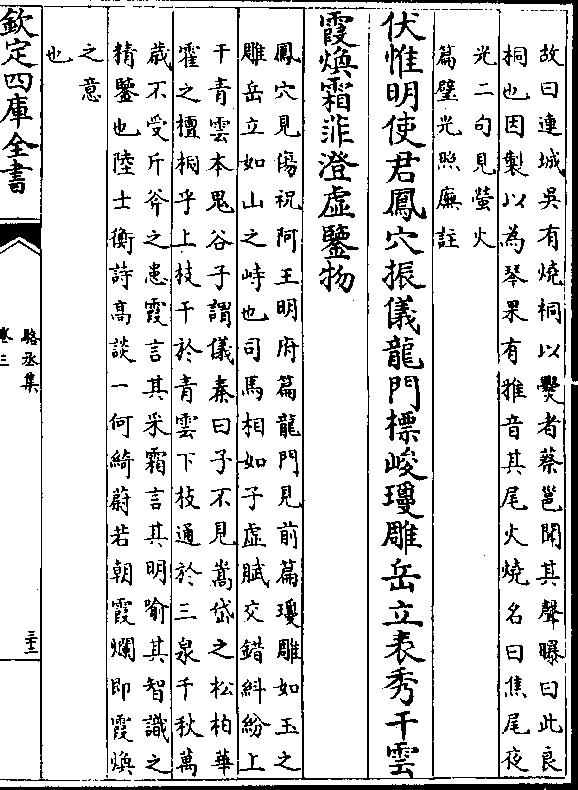 故曰連城吳有燒桐以爨者蔡邕聞其聲曝曰此良
桐也因製以為琴果有雅音其尾火燒名曰焦尾夜
光二句見螢火
篇璧光照廡註
伏惟明使君鳳穴振儀龍門標峻瓊雕岳立表秀干雲
霞煥霜菲澄虛鑒物
鳳穴見傷祝阿王明府篇龍門見前篇瓊雕如玉之
雕岳立如山之峙也司馬相如子虛賦交錯糾紛上
干青雲本鬼谷子謂儀秦曰子不見嵩岱之松柏華
霍之檀桐乎上枝干於青雲下枝通於三泉千秋萬
歲不受斤斧之患霞言其采霜言其明喻其智識之
精鑒也陸士衡詩高談一何綺蔚若朝霞爛即霞煥
之意
也
欽定四庫全書
駱丞集
卷三
三十三